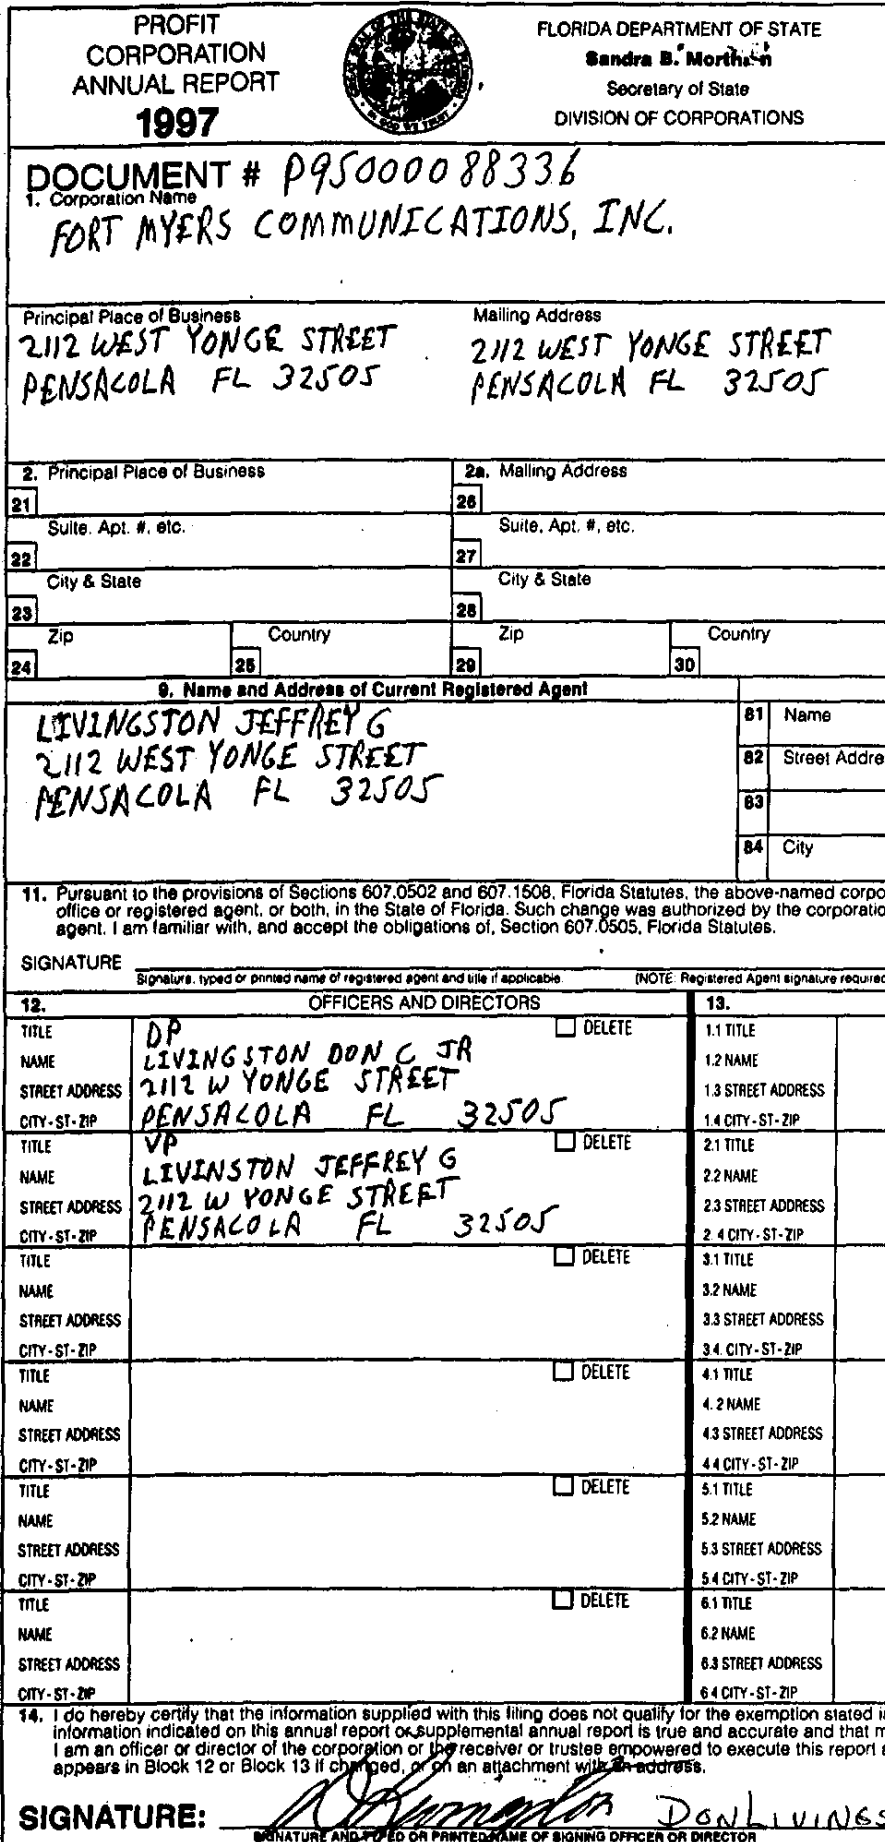 PROFIT
CORPORATION
ANNUAL REPORT
1997
FLORIDA DEPARTMENT OF STATE
Sandra B.
Secretary of State
DIVISION OF CORPORATIONS
DOCUMENT # P95000088336
1. Corporation Name
FORT MYERS COMMUNICATIONS, INC.
Principal Place of Business
2112 WEST YONGE STREET
PENSACOLA FL 32505
Mailing Address
2112 WEST YONGE STREET
PENSACOLA FL 32505
2. Principal Place of Business
21
Suite, Apt. #, etc.
22
City & State
23
Zip
24
Country
25
2a. Mailing Address
26
Suite, Apt. #, etc.
27
City & State
28
Zip
29
Country
30
9. Name and Address of Current Registered Agent
LIVINGSTON JEFFREY G
2112 WEST YONGE STREET
PENSACOLA FL 32505
81 Name
82 Street Addre
83
84 City
11. Pursuant to the provisions of Sections 607.0502 and 607.1508, Florida Statutes, the above-named corpo
office or registered agent, or both, in the State of Florida. Such change was authorized by the corporatio
agent. I am familiar with, and accept the obligations of, Section 607.0505, Florida Statutes.
SIGNATURE
Signature, typed or printed name of registered agent and title if applicable. (NOTE: Registered Agent signature required
12. OFFICERS AND DIRECTORS 13.
TITLE DP DELETE 1.1 TITLE
NAME LIVINGSTON DON C JR 1.2 NAME
STREET ADDRESS 2112 W YONGE STREET 1.3 STREET ADDRESS
CITY-ST-ZIP PENSACOLA FL 32505 1.4 CITY-ST-ZIP
TITLE VP DELETE 2.1 TITLE
NAME LIVINSTON JEFFREY G 2.2 NAME
STREET ADDRESS 2112 W YONGE STREET 2.3 STREET ADDRESS
CITY-ST-ZIP PENSACOLA FL 32505 2.4 CITY-ST-ZIP
TITLE DELETE 3.1 TITLE
NAME 3.2 NAME
STREET ADDRESS 3.3 STREET ADDRESS
CITY-ST-ZIP 3.4. CITY-ST-ZIP
TITLE DELETE 4.1 TITLE
NAME 4.2 NAME
STREET ADDRESS 4.3 STREET ADDRESS
CITY-ST-ZIP 4.4 CITY-ST-ZIP
TITLE DELETE 5.1 TITLE
NAME 5.2 NAME
STREET ADDRESS 5.3 STREET ADDRESS
CITY-ST-ZIP 5.4 CITY-ST-ZIP
TITLE DELETE 6.1 TITLE
NAME 6.2 NAME
STREET ADDRESS 6.3 STREET ADDRESS
CITY-ST-ZIP 6.4 CITY-ST-ZIP
14. I do hereby certify that the information supplied with this filing does not qualify for the exemption stated i
information indicated on this annual report or supplemental annual report is true and accurate and that m
I am an officer or director of the corporation or the receiver or trustee empowered to execute this report a
appears in Block 12 or Block 13 if changed, or on an attachment with an address.
SIGNATURE: DON LIVINGS
SIGNATURE AND TYPED OR PRINTED NAME OF SIGNING OFFICER OR DIRECTOR